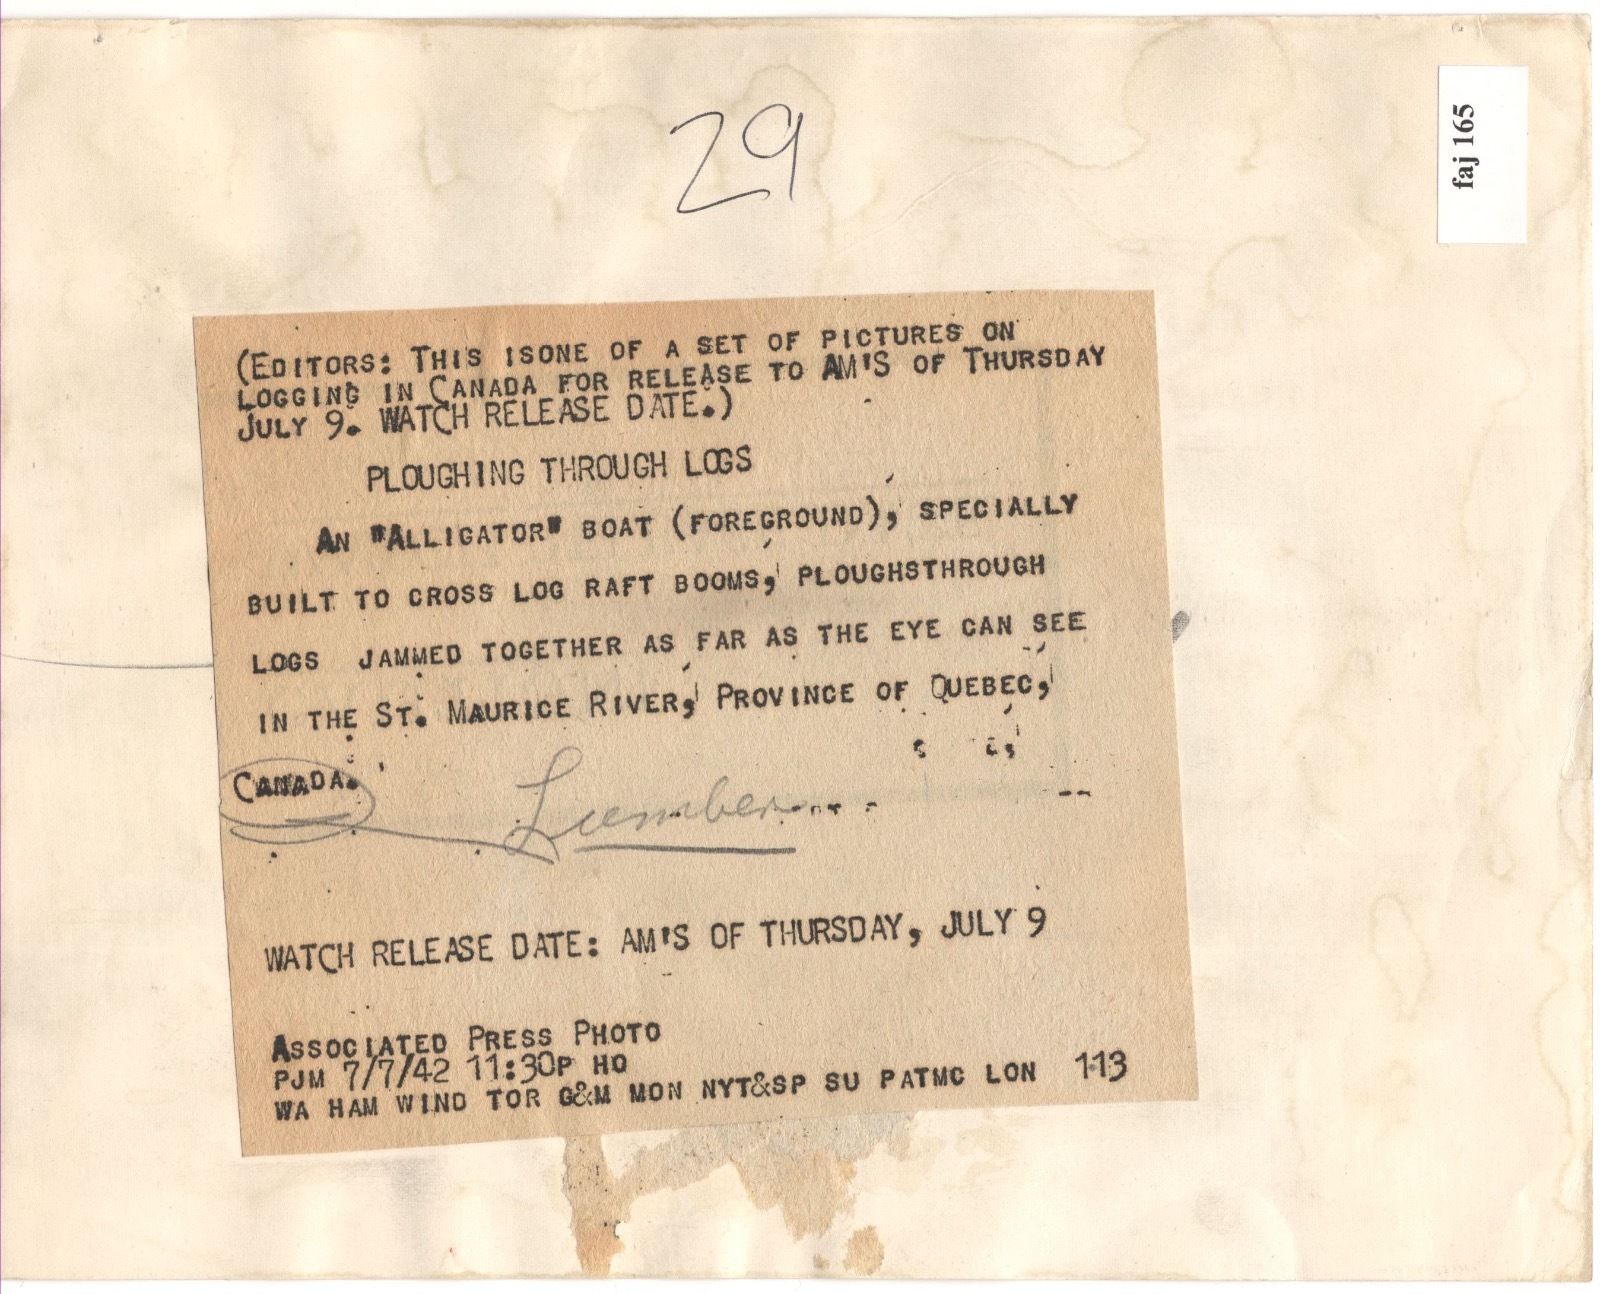 29
faj 165
(EDITORS: THIS ISONE OF A SET OF PICTURES ON
LOGGING IN CANADA FOR RELEASE TO AM'S OF THURSDAY
JULY 9. WATCH RELEASE DATE.)
PLOUGHING THROUGH LOGS
AN "ALLIGATOR" BOAT (FOREGROUND), SPECIALLY
BUILT TO CROSS LOG RAFT BOOMS, PLOUGHSTHROUGH
LOGS JAMMED TOGETHER AS FAR AS THE EYE CAN SEE
IN THE ST. MAURICE RIVER, PROVINCE OF QUEBEC,
CANADA.
Lumber
WATCH RELEASE DATE: AM'S OF THURSDAY, JULY 9
ASSOCIATED PRESS PHOTO
PJM 7/7/42 11:30P HO
WA HAM WIND TOR G&M MON NYT&SP SU PATMC LON 113